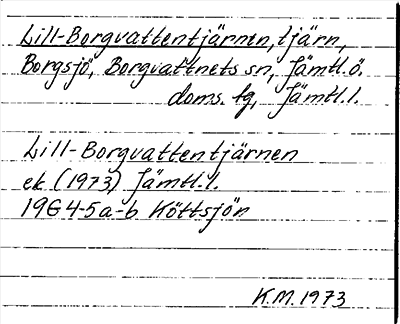 Lill-Borgvattentjärnen, tjärn,
Borgsjö, Borgvattnets sn, Jämtl.ö.
doms. tg, Jämtl.l.
Lill-Borgvattentjärnen
ek (1973) Jämtl.l.
19G 4-5a-b Köttsjön
K.M. 1973